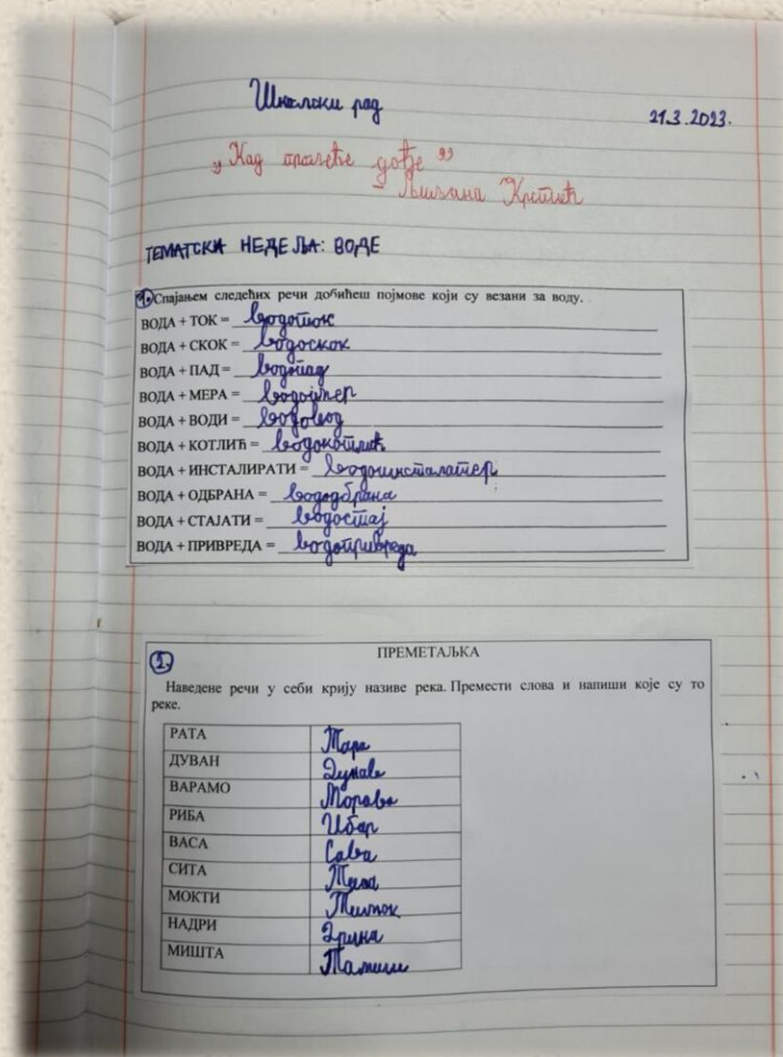 Школски рад
21.3.2023.
„Кад пролеће дође”
- Љиљана Крстић
ТЕМАТСКА НЕДЕЉА: ВОДЕ
1. Спајањем следећих речи добићеш појмове који су везани за воду.
ВОДА + ТОК = водоток
ВОДА + СКОК = водоскок
ВОДА + ПАД = водопад
ВОДА + МЕРА = водомер
ВОДА + ВОДИ = водовод
ВОДА + КОТЛИЋ = водокотлић
ВОДА + ИНСТАЛИРАТИ = водоинсталатер
ВОДА + ОДБРАНА = вododбрана
ВОДА + СТАЈАТИ = водостај
ВОДА + ПРИВРЕДА = водопривреда
2. ПРЕМЕТАЉКА
Наведене речи у себи крију називе река. Премести слова и напиши које су то
реке.
РАТА Тара
ДУВАН Дунав
ВАРАМО Морава
РИБА Ибар
ВАСА Сава
СИТА Тиса
МОКТИ Тимок
НАДРИ Дрина
МИШТА Тамиш